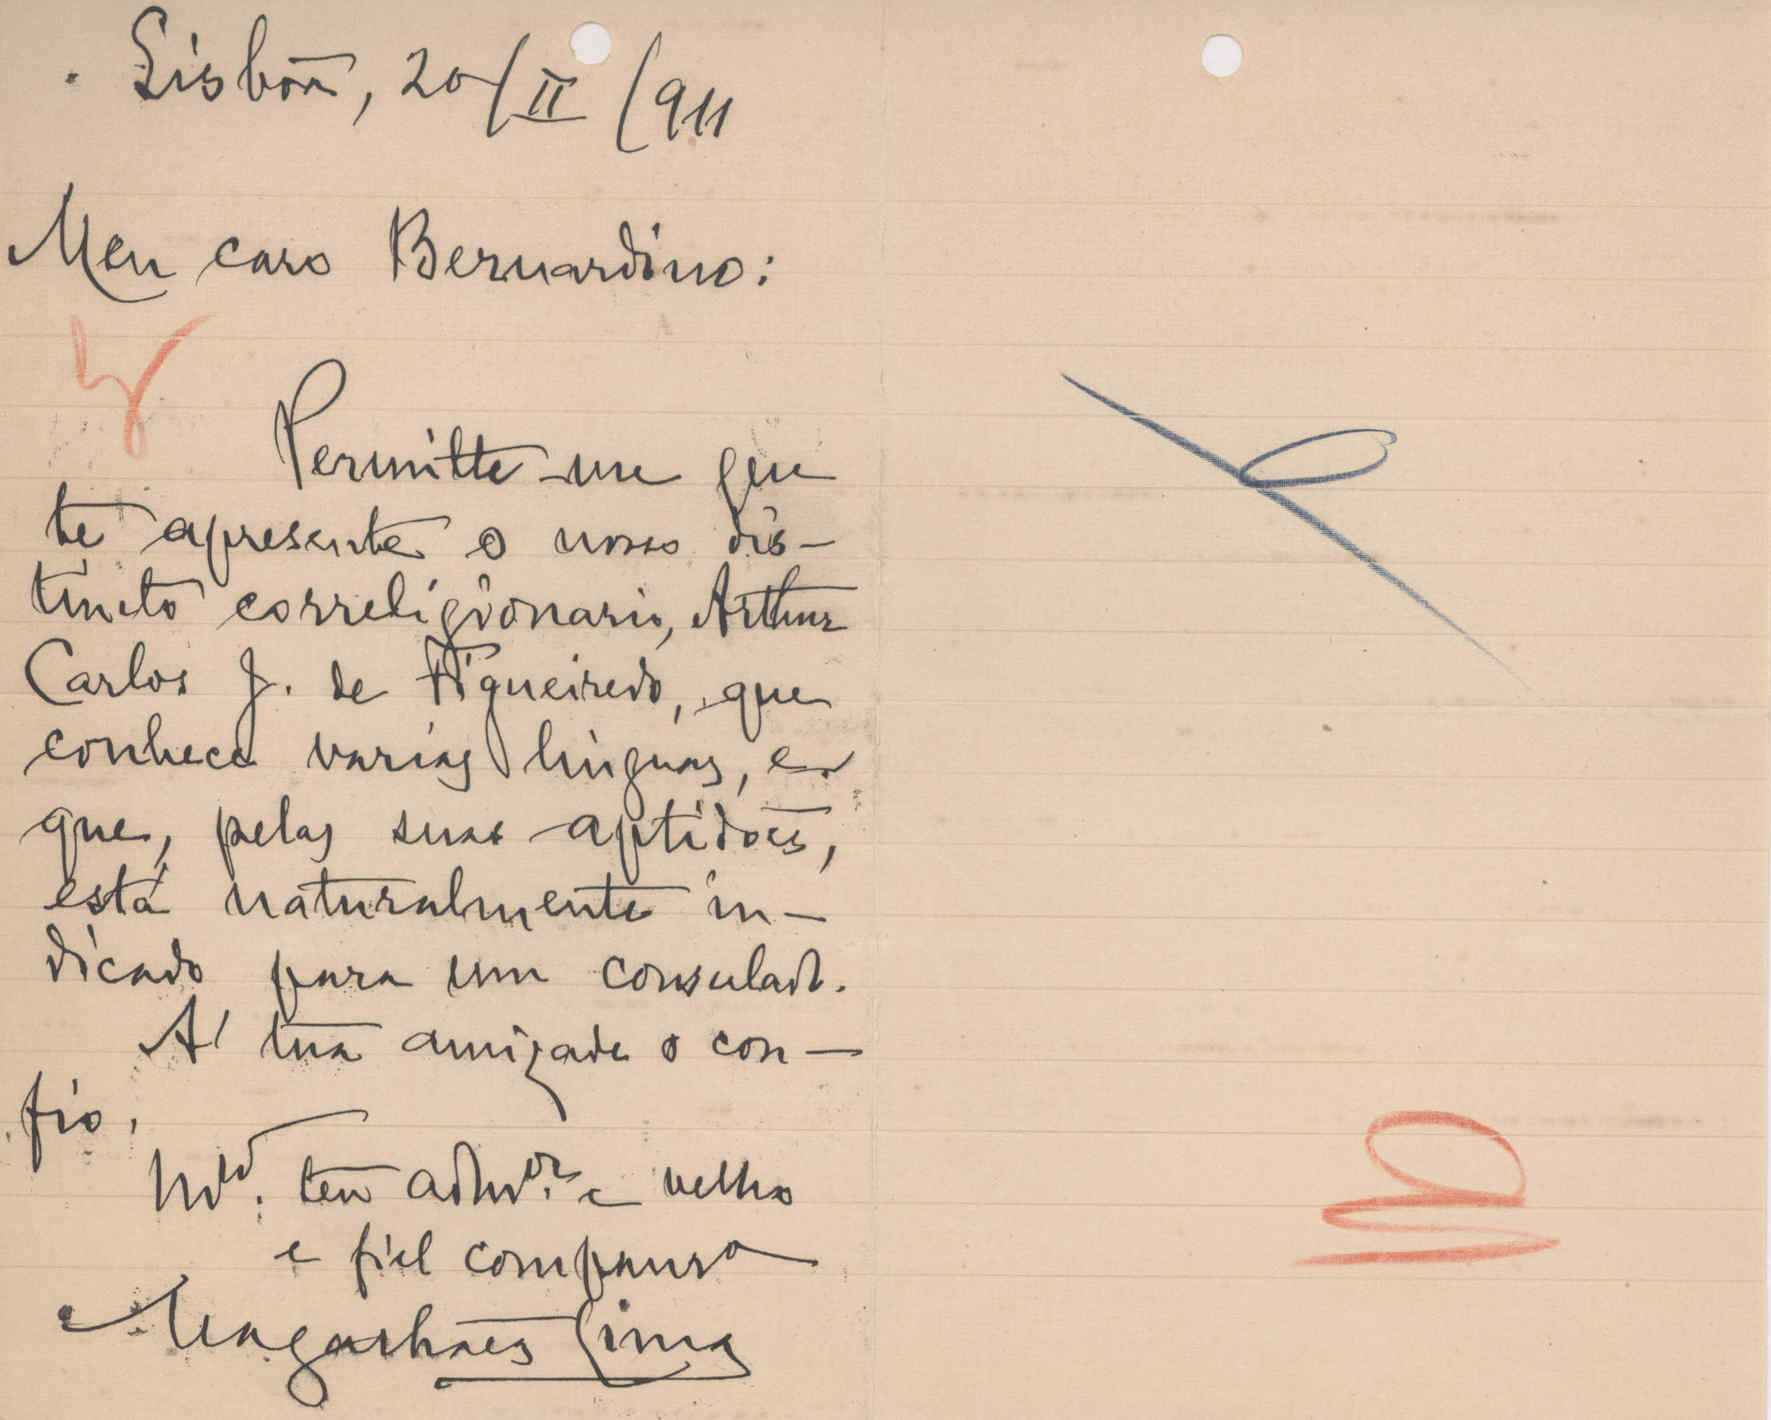 Lisbôa, 20/II/911
Meu caro Bernardino:
Permitte-me que
te apresente o nosso dis-
tincto correligionario, Arthur
Carlos J. de Figueiredo, que
conhece varias linguas, e
que, pelas suas aptidões,
está naturalmente in-
dicado para um consulado.
A' tua amizade o con-
fio.
teu admor. e velho
e fiel companro
Magalhães Lima